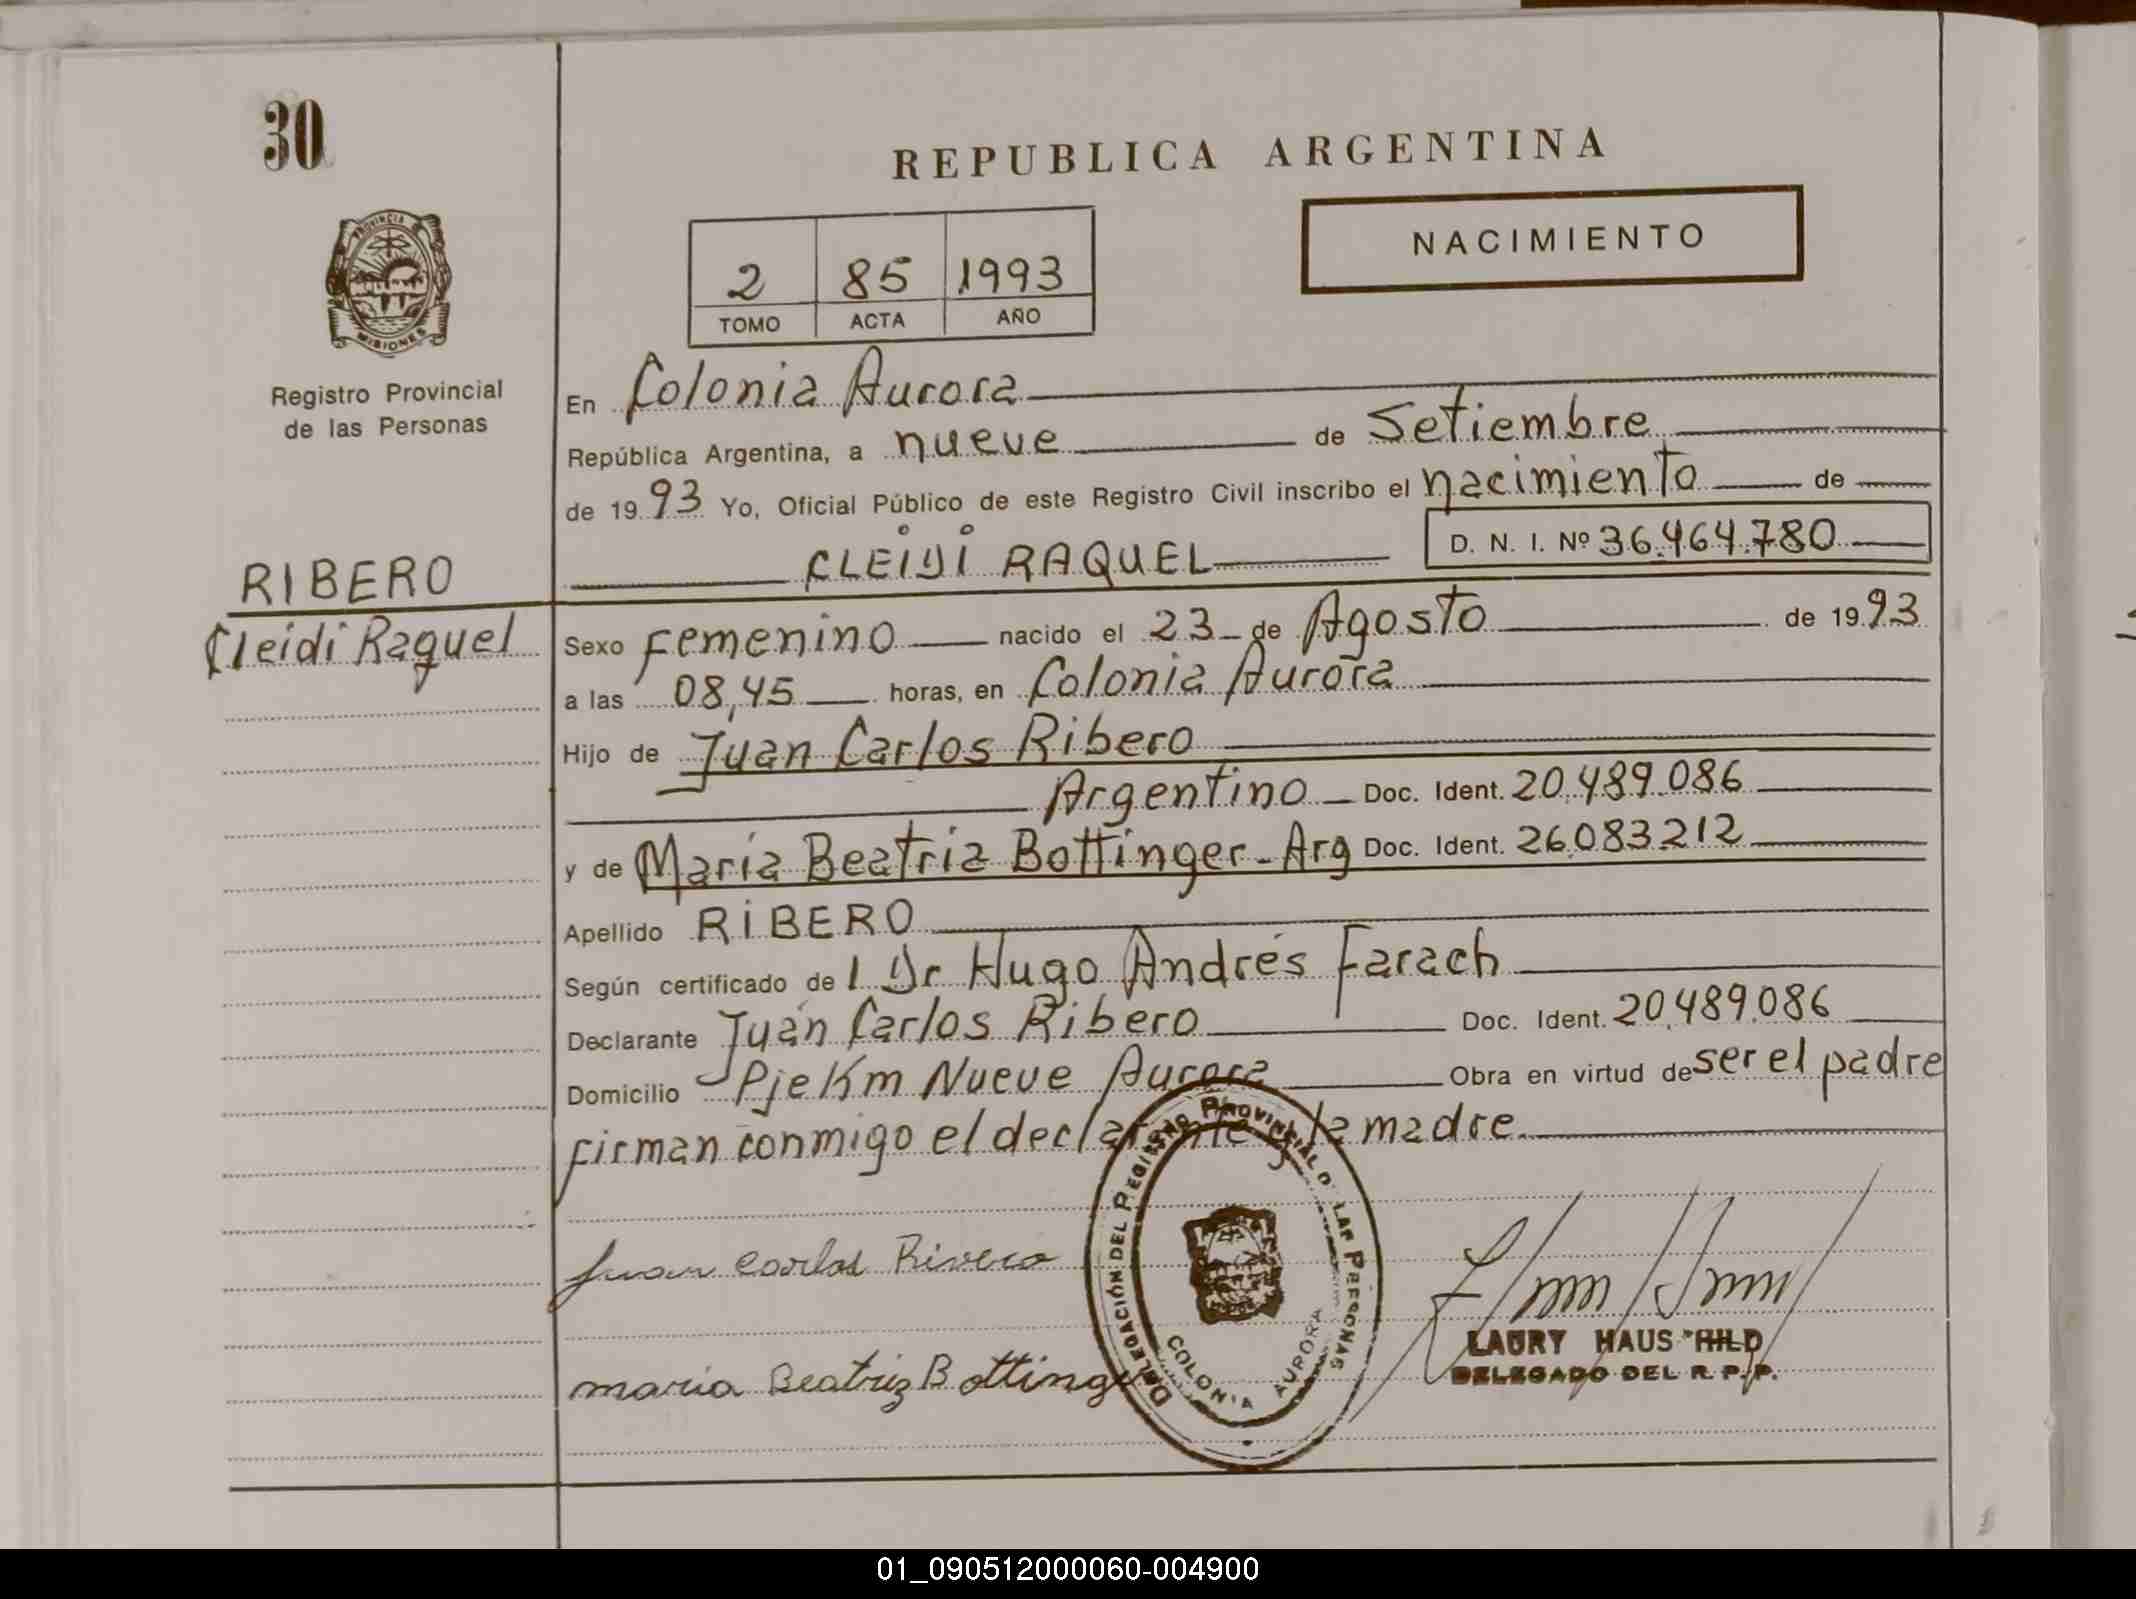 30
REPUBLICA ARGENTINA
NACIMIENTO
2 85 1993
TOMO ACTA AÑO
PROVINCIA DE
MISIONES
Registro Provincial
de las Personas
En Colonia Aurora
República Argentina, a nueve de Setiembre
de 1993 Yo, Oficial Público de este Registro Civil inscribo el nacimiento de
CLEIDI RAQUEL D. N. I. Nº 36.464.780
RIBERO
Cleidi Raquel
Sexo Femenino nacido el 23 de Agosto de 1993
a las 08,45 horas, en Colonia Aurora
Hijo de Juan Carlos Ribero
Argentino Doc. Ident. 20.489.086
y de María Beatria Bottinger-Arg Doc. Ident. 26.083.212
Apellido RIBERO
Según certificado de l Dr Hugo Andrés Farach
Declarante Juan Carlos Ribero Doc. Ident. 20.489.086
Domicilio Pje Km Nueve Aurora Obra en virtud de ser el padre
firman conmigo el declarante y la madre
Juan Carlos Rivero
maria Beatriz Bottinger
DELEGACIÓN DEL REGISTRO PROVINCIAL D LAS PERSONAS
COLONIA AURORA
LAURY HAUS HILD
DELEGADO DEL R. P. P.
01_090512000060-004900